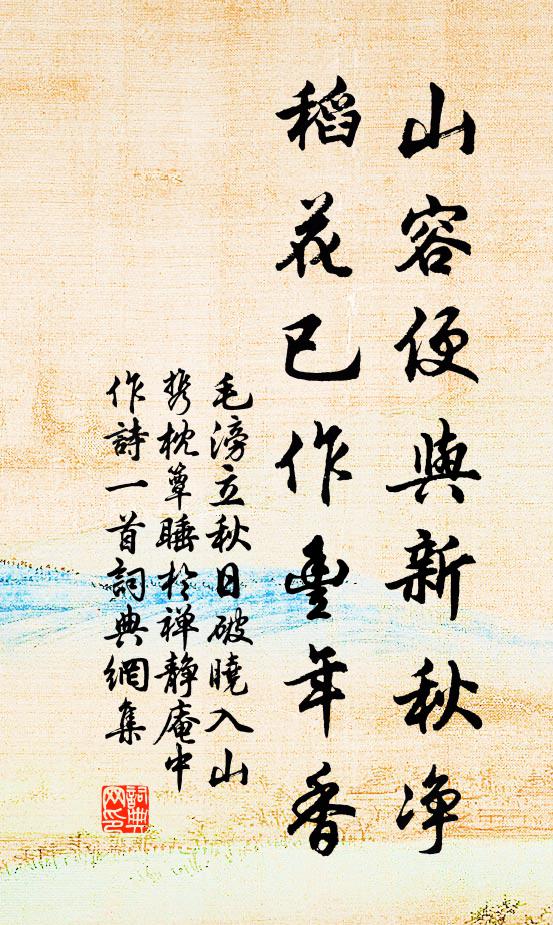 山容便與新秋净
稻花已作豊年香
毛滂立秋日破曉入山
携枕簟睡於禅静庵中
作詩一首詞典網集
詞典网印